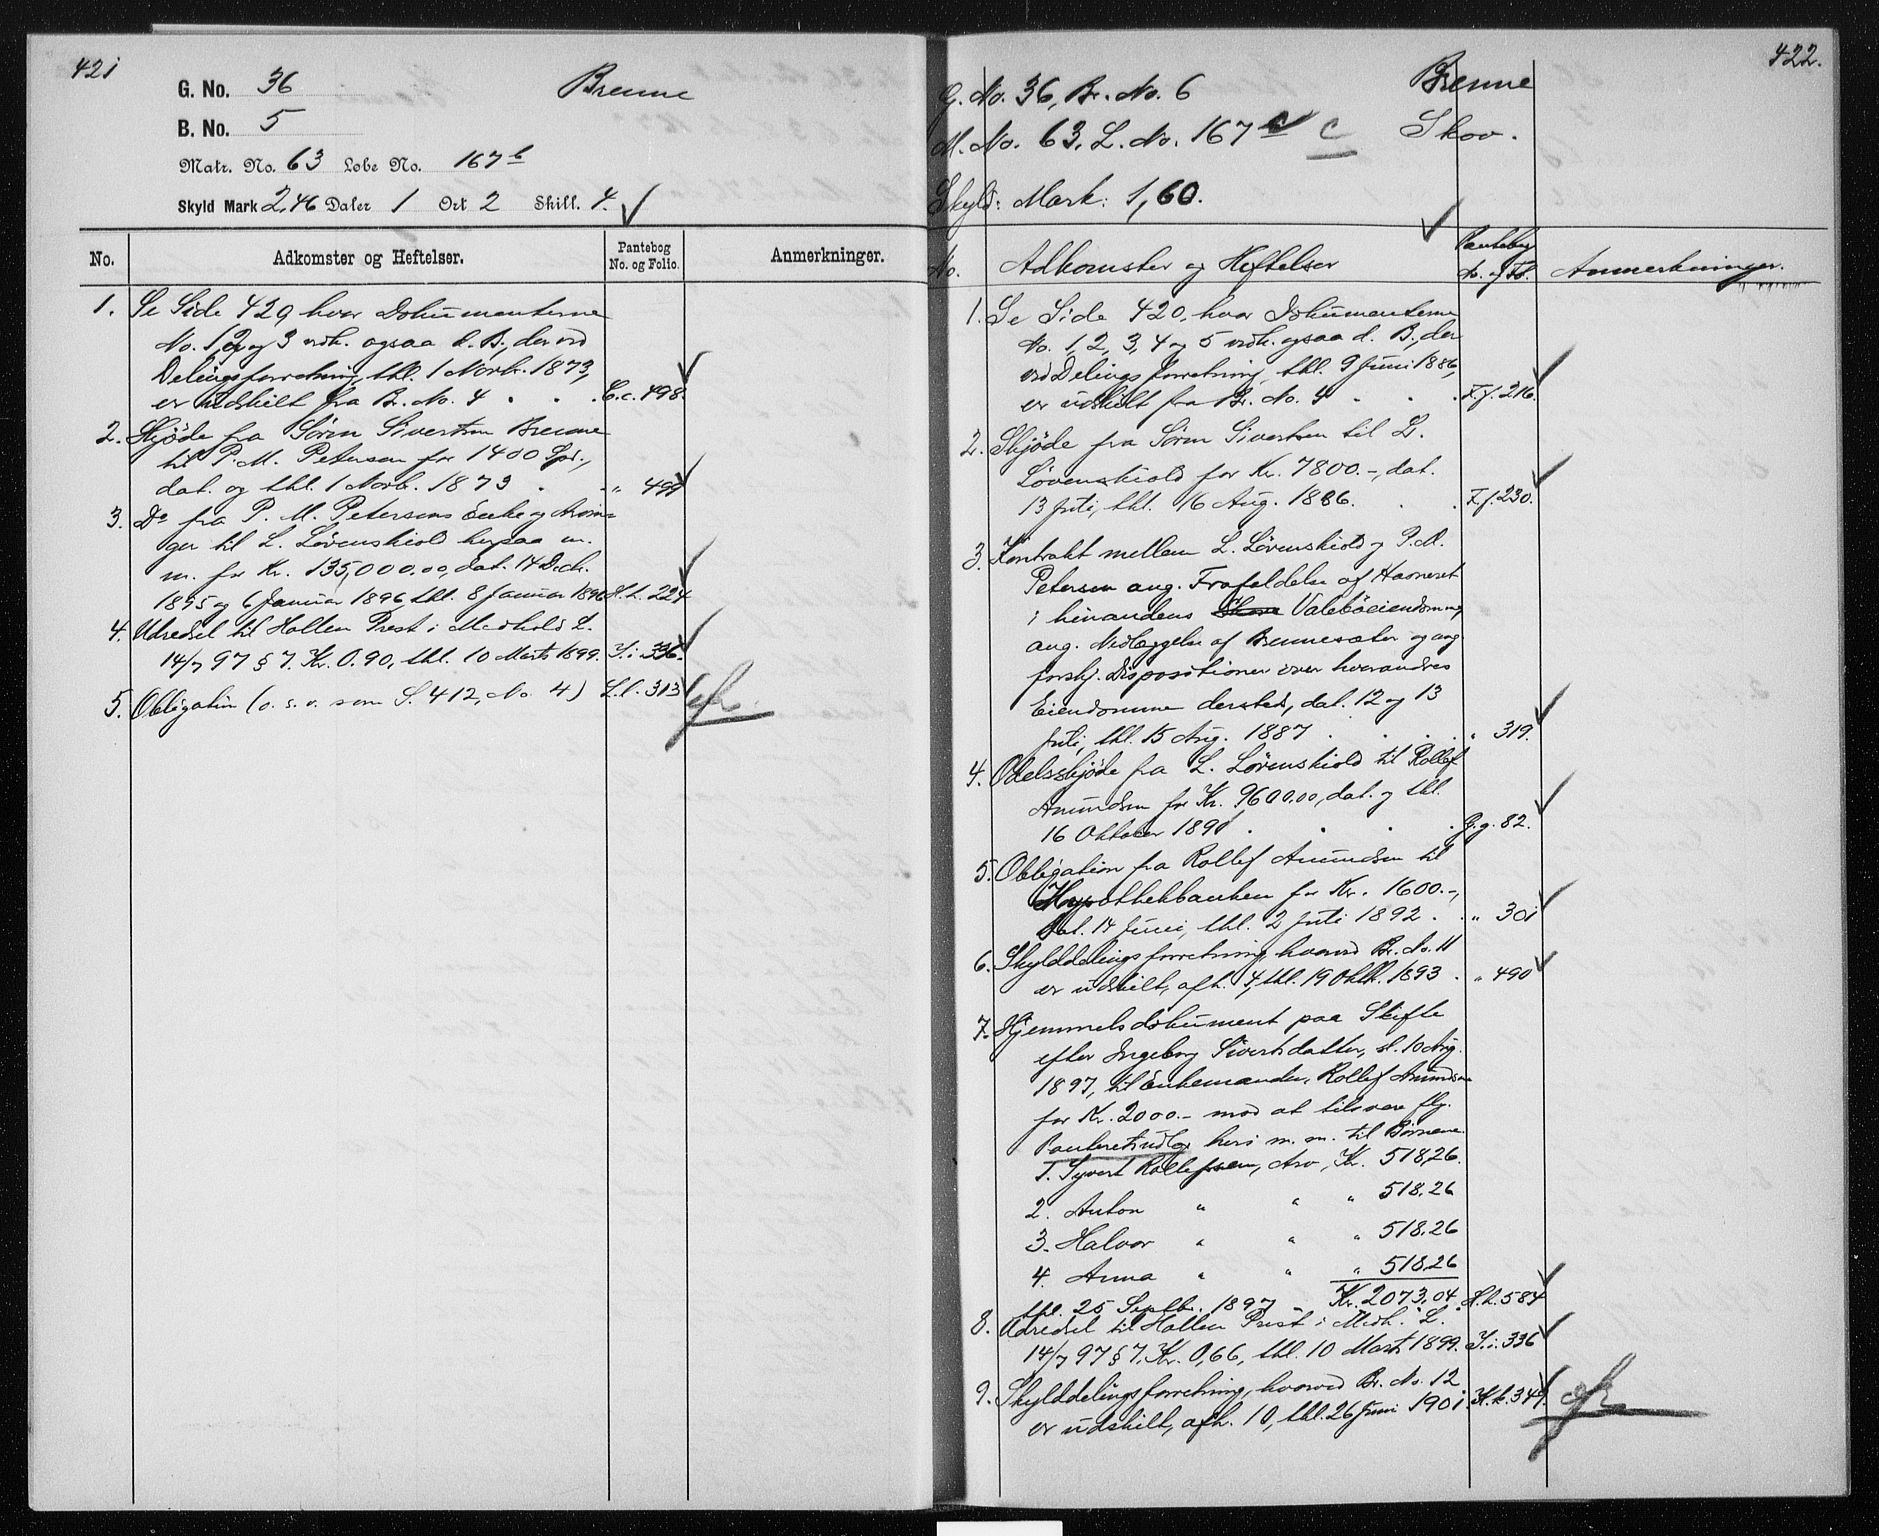 421
G. No. 36 Brenne
B. No. 5
Matr. No. 63 Lobe No. 167 b
Skyld Mark 2,46 Daler 1 Ort 2 Skill. 4.
No. Adkomster og Heftelser. Pantebog No. og Folio. Anmerkninger.
1. Se Side 420, hvor Dokumenterne
No. 1, 2 og 3 vedk. ogsaa d. B., der ved
Delingsforretning, thl. 1 Novbr. 1873,
er udskilt fra Br. No. 4 . . C.c. 498.
2. Skjøde fra Søren Sivertsen Brenne
til P. M. Petersen for 1400 Spd.,
dat. og thl. 1 Novb. 1873 . . " 499
3. Do fra P. M. Petersens Enke og Arvin-
ger til L. Løvenskiold herpaa m.
m. for Kr. 135,000.00, dat. 14 Decb.
1895 og 6 Januar 1896, thl. 8 Januar 1896 H.h. 224
4. Udredsel til Hollen Prest i Medhold L.
14/7 97 § 7. Kr. 0.90, thl. 10 Marts 1899. I.i. 336.
5. Obligation (o. s. v. som S. 412, No. 4) L.l. 313
422.
G. No. 36, Br. No. 6 Brenne
M. No. 63. L. No. 167 c c Skov.
Skyld: Mark: 1,60.
No. Adkomster og Heftelser Pantebog No. og Fol. Anmerkninger.
1. Se Side 420, hvor Dokumenterne
No. 1, 2, 3, 4 og 5 vedk. ogsaa d. B., der
ved Delingsforretning, thl. 9 Juni 1886,
er udskilt fra Br. No. 4 . . . F.f. 216.
2. Skjøde fra Søren Sivertsen til L.
Løvenskiold for Kr. 7800.-, dat.
13 Juli, thl. 16 Aug. 1886. . . F.f. 230.
3. Kontrakt mellem L. Løvenskiold og P. M.
Petersen ang. Frafaldelse af Havneret
i hinandens Valebøeiendomme,
ang. Nedlæggelse af Brennesæter og ang.
forskj. Dispositioner over hverandres
Eiendomme dersted, dat. 12 og 13
Juli, thl. 15 Aug. 1887 . . . . " 319.
4. Odelsskjøde fra L. Løvenskiold til Rollef
Amundsen for Kr. 9600.00, dat. og thl.
16 Oktober 1891 . . . . G.g. 82.
5. Obligation fra Rollef Amundsen til
Hypothekbanken for Kr. 1600.-,
dat. 14 Juni, thl. 2 Juli 1892 . . " 301
6. Skylddelingsforretning, hvorved Br. No. 11
er udskilt, afh. 4, thl. 19 Oktb. 1893 . " 490
7. Hjemmelsdokument paa Skifte
efter Ingeborg Sivertsdatter, sl. 10 Aug.
1897, til Enkemanden, Rollef Amundsen
for Kr. 2000.- mod at tilsvare flg.
Panteretsudlæg heri m. m. til Børnene.
1. Syvert Rollefsen, Arv, Kr. 518,26.
2. Anton " " " 518.26
3. Halvor " " " 518.26
4. Anna " " " 518.26
thl. 25 Septbr. 1897 . Kr. 2073.04. H.h. 584
8. Udredsel til Hollen Prest i Medh. L.
14/7 97 § 7. Kr. 0,66, thl. 10 Marts 1899. I.i. 336
9. Skylddelingsforretning, hvorved Br. No. 12
er udskilt, afh. 10, thl. 26 Juni 1901. K.k. 349.